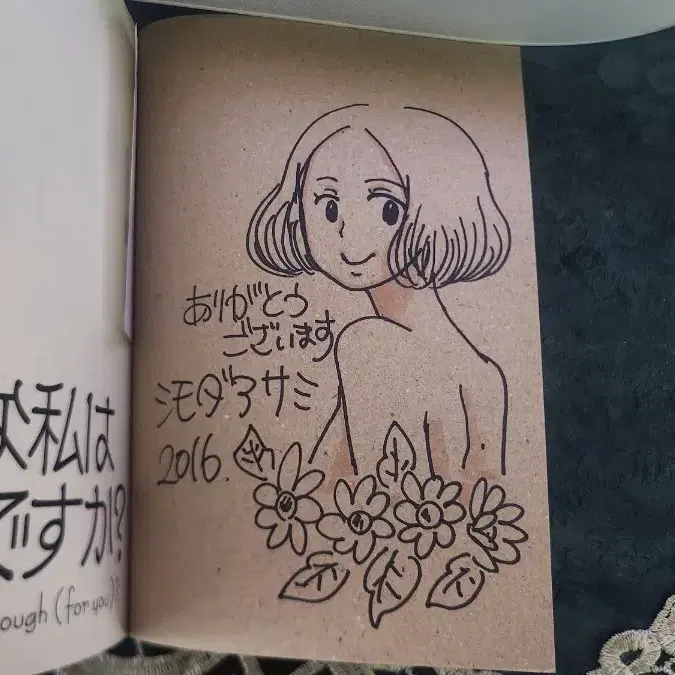 私は
ですか?
ough (for you)?
ありがとう
ございます
シモダアサミ
2016.